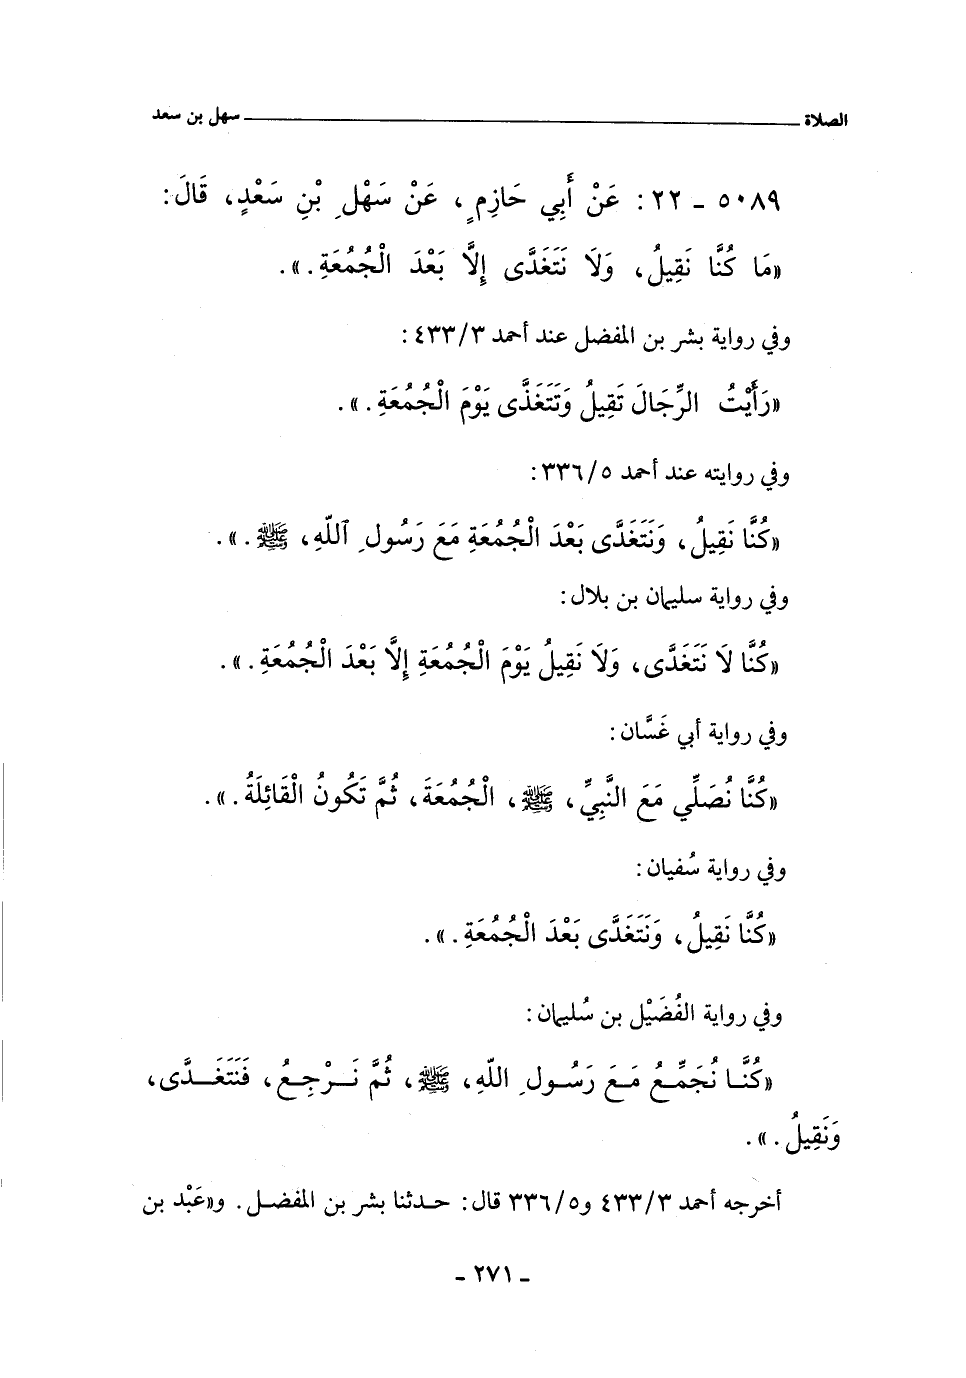 الصلاة ــــــ سهل بن سعد
٥٠٨٩ ـ ٢٢: عَنْ أَبِي حَازِمٍ، عَنْ سَهْلِ بْنِ سَعْدٍ، قَالَ:
«مَا كُنَّا نَقِيلُ، وَلَا نَتَغَدَّى إِلَّا بَعْدَ الْجُمُعَةِ.».
وفي رواية بشر بن المفضل عند أحمد ٤٣٣/٣:
«رَأَيْتُ الرِّجَالَ تَقِيلُ وَتَتَغَذَّى يَوْمَ الْجُمُعَةِ.».
وفي روايته عند أحمد ٣٣٦/٥:
«كُنَّا نَقِيلُ، وَنَتَغَدَّى بَعْدَ الْجُمُعَةِ مَعَ رَسُولِ ٱللّهِ، ﷺ.».
وفي رواية سليمان بن بلال:
«كُنَّا لَا نَتَغَدَّى، وَلَا نَقِيلُ يَوْمَ الْجُمُعَةِ إِلَّا بَعْدَ الْجُمُعَةِ.».
وفي رواية أبي غَسَّان:
«كُنَّا نُصَلِّي مَعَ النَّبِيِّ، ﷺ، الْجُمُعَةَ، ثُمَّ تَكُونُ الْقَائِلَةُ.».
وفي رواية سُفيان:
«كُنَّا نَقِيلُ، وَنَتَغَدَّى بَعْدَ الْجُمُعَةِ.».
وفي رواية الفُضَيْل بن سُليمان:
«كُنَّا نُجَمِّعُ مَعَ رَسُولِ اللّهِ، ﷺ، ثُمَّ نَرْجِعُ، فَنَتَغَدَّى،
وَنَقِيلُ.».
أخرجه أحمد ٤٣٣/٣ و٣٣٦/٥ قال: حدثنا بشر بن المفضل. و«عَبْد بن
ـ ٢٧١ ـ